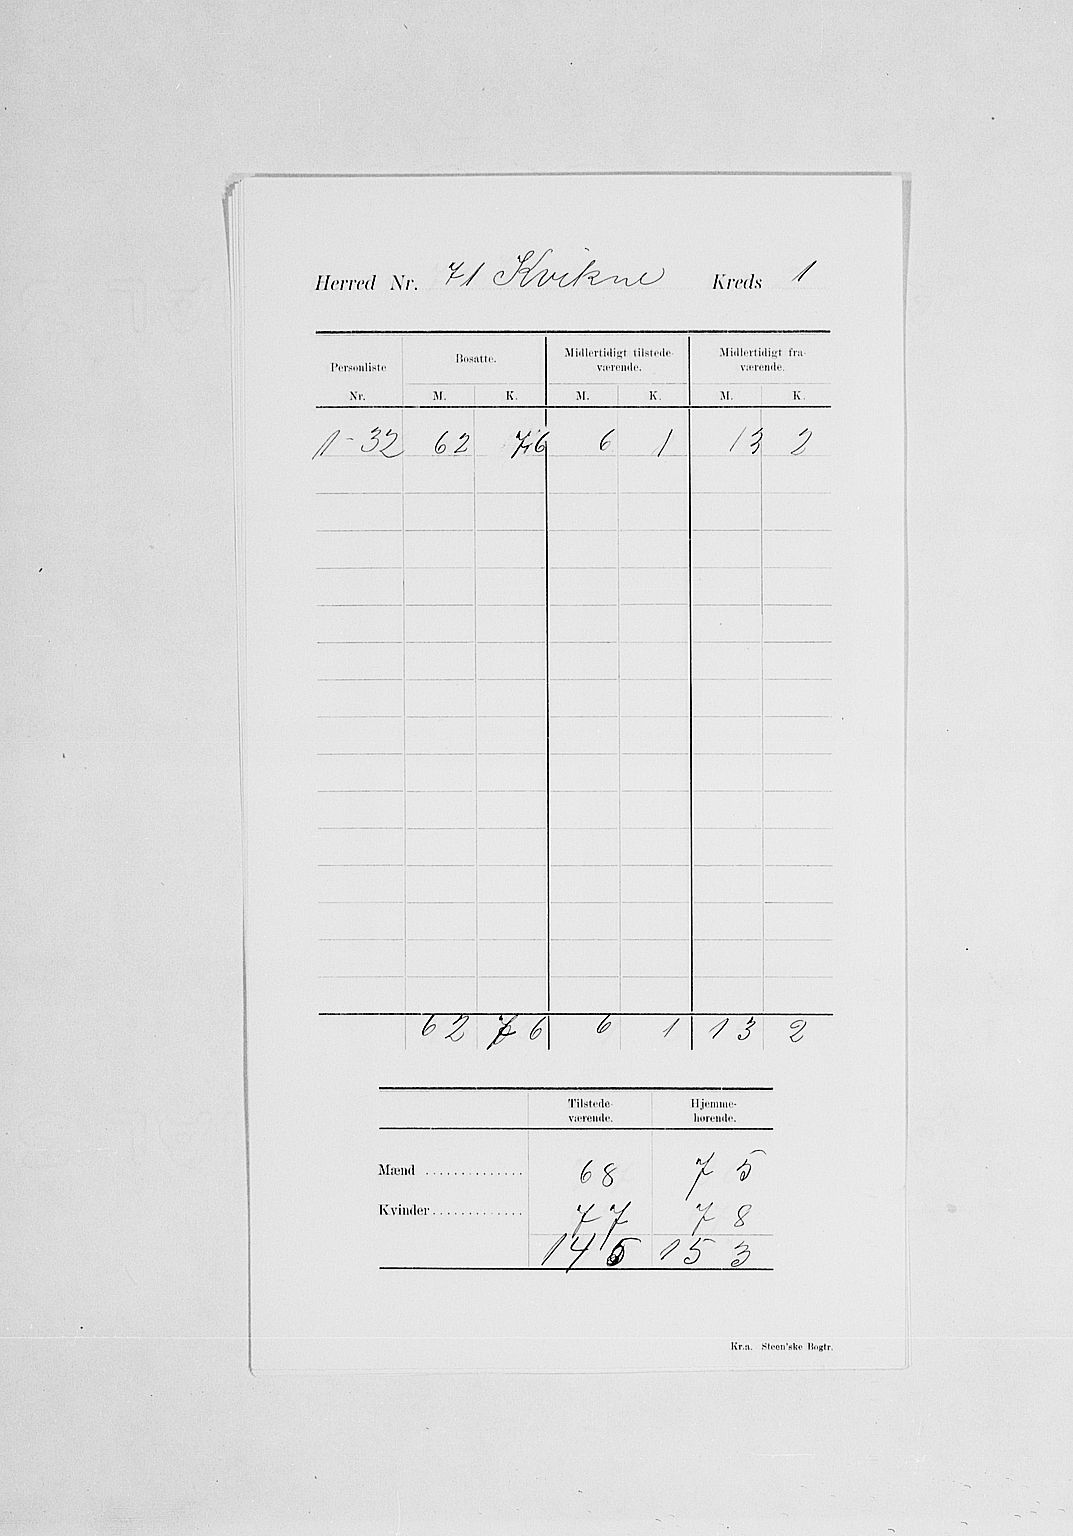 Herred Nr. 71 Kvikne Kreds 1
Personliste Bosatte. Midlertidigt tilstede- Midlertidigt fra-
værende. værende.
Nr. M. K. M. K. M. K.
1-32 62 76 6 1 13 2
62 76 6 1 13 2
Tilstede- Hjemme-
værende. hørende.
Mænd .............. 68 75
Kvinder............. 77 78
145 153
Kr.a. Steen'ske Bogtr.